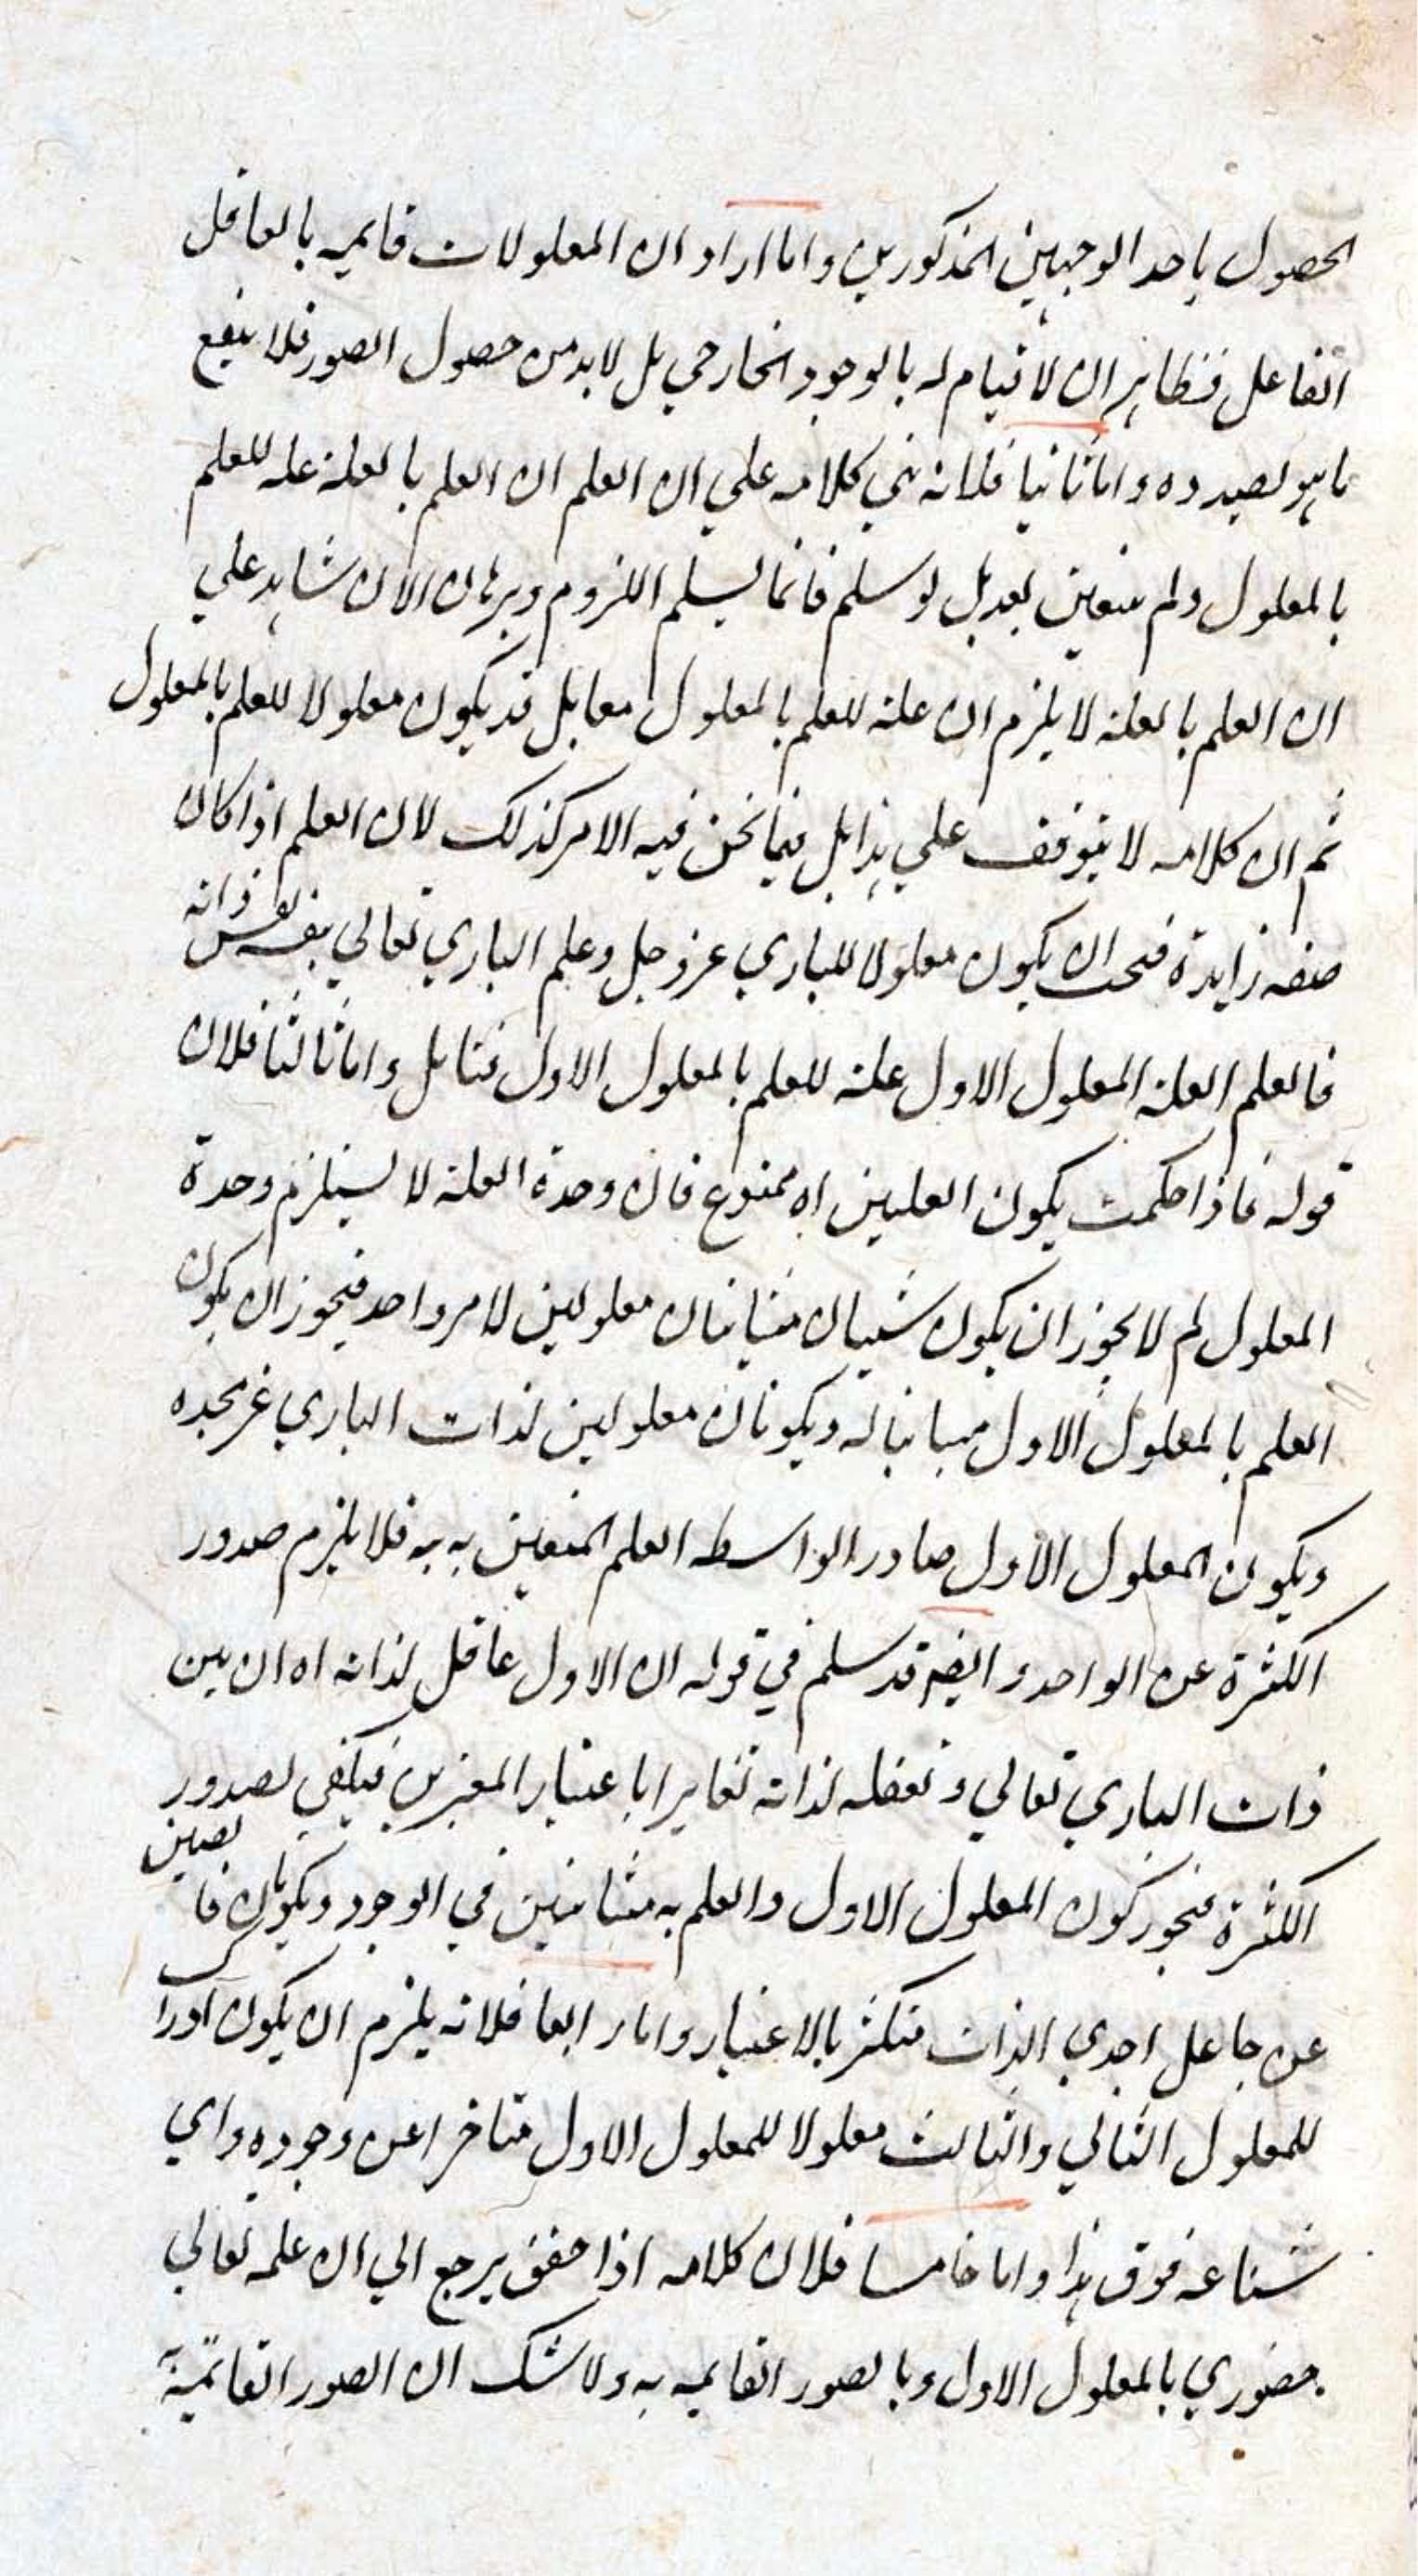 الحصول باحد الوجهين المذكورين واما اراد ان المعلولات قايمه بالعاقل
الفاعل فظاهر ان لا قيام له بالوجود الخارجي بل لابد من حصول الصور فلا ينفع
ما هو بصدده واما ثانيا فلانه بني كلامه علي ان العلم ان العلم بالعلة عله للعلم
بالمعلول ولم يتعين بعد بل لو سلم فانما يسلم اللزوم وبرهان الان شاهد علي
ان العلم بالعلة لا يلزم ان علة للعلم بالمعلول معا بل قد يكون معلولا للعلم بالمعلول
ثم ان كلامه لا يتوقف علي هذا بل فيما نحن فيه الامر كذلك لان العلم اذا كان
صفه زايدة فيجب ان يكون معلولا للباري عز وجل وعلم الباري تعالي بنفسه نفس ذاته
فالعلم العلة المعلول الاول علة للعلم بالمعلول الاول فتامل واما ثالثا فلان
قوله فاذا حكمت بكون العلتين اه ممنوع فان وحدة العلة لا يستلزم وحدة
المعلول لم لا يجوز ان يكون شيئان متباينان معلولين لامر واحد فيجوز ان يكون
العلم بالمعلول الاول مباينا له ويكونان معلولين لذات الباري عز مجده
ويكون المعلول الاول صادرا بواسطه العلم المتعين به به فلا يلزم صدور
الكثرة عن الواحد وايضم قد سلم في قوله ان الاول عاقل لذاته اه ان بين
ذات الباري تعالي وتعقله لذاته تغايرا باعتبار المعتبرين فيكفي لصدور
الكثرة فيجوز كون المعلول الاول والعلم به متباينين في الوجود ويكونان فايضين
عن جاعل احدي الذات متكثر بالاعتبار واما رابعا فلانه يلزم ان يكون ادراك
للمعلول الثاني والثالث معلولا للمعلول الاول متاخرا عن وجوده واي
شناعه فوق هذا واما خامسا فلان كلامه اذا حقق يرجع الي ان علمه تعالي
حضوري بالمعلول الاول وبالصور القايمه به ولا شك ان الصور القائمية